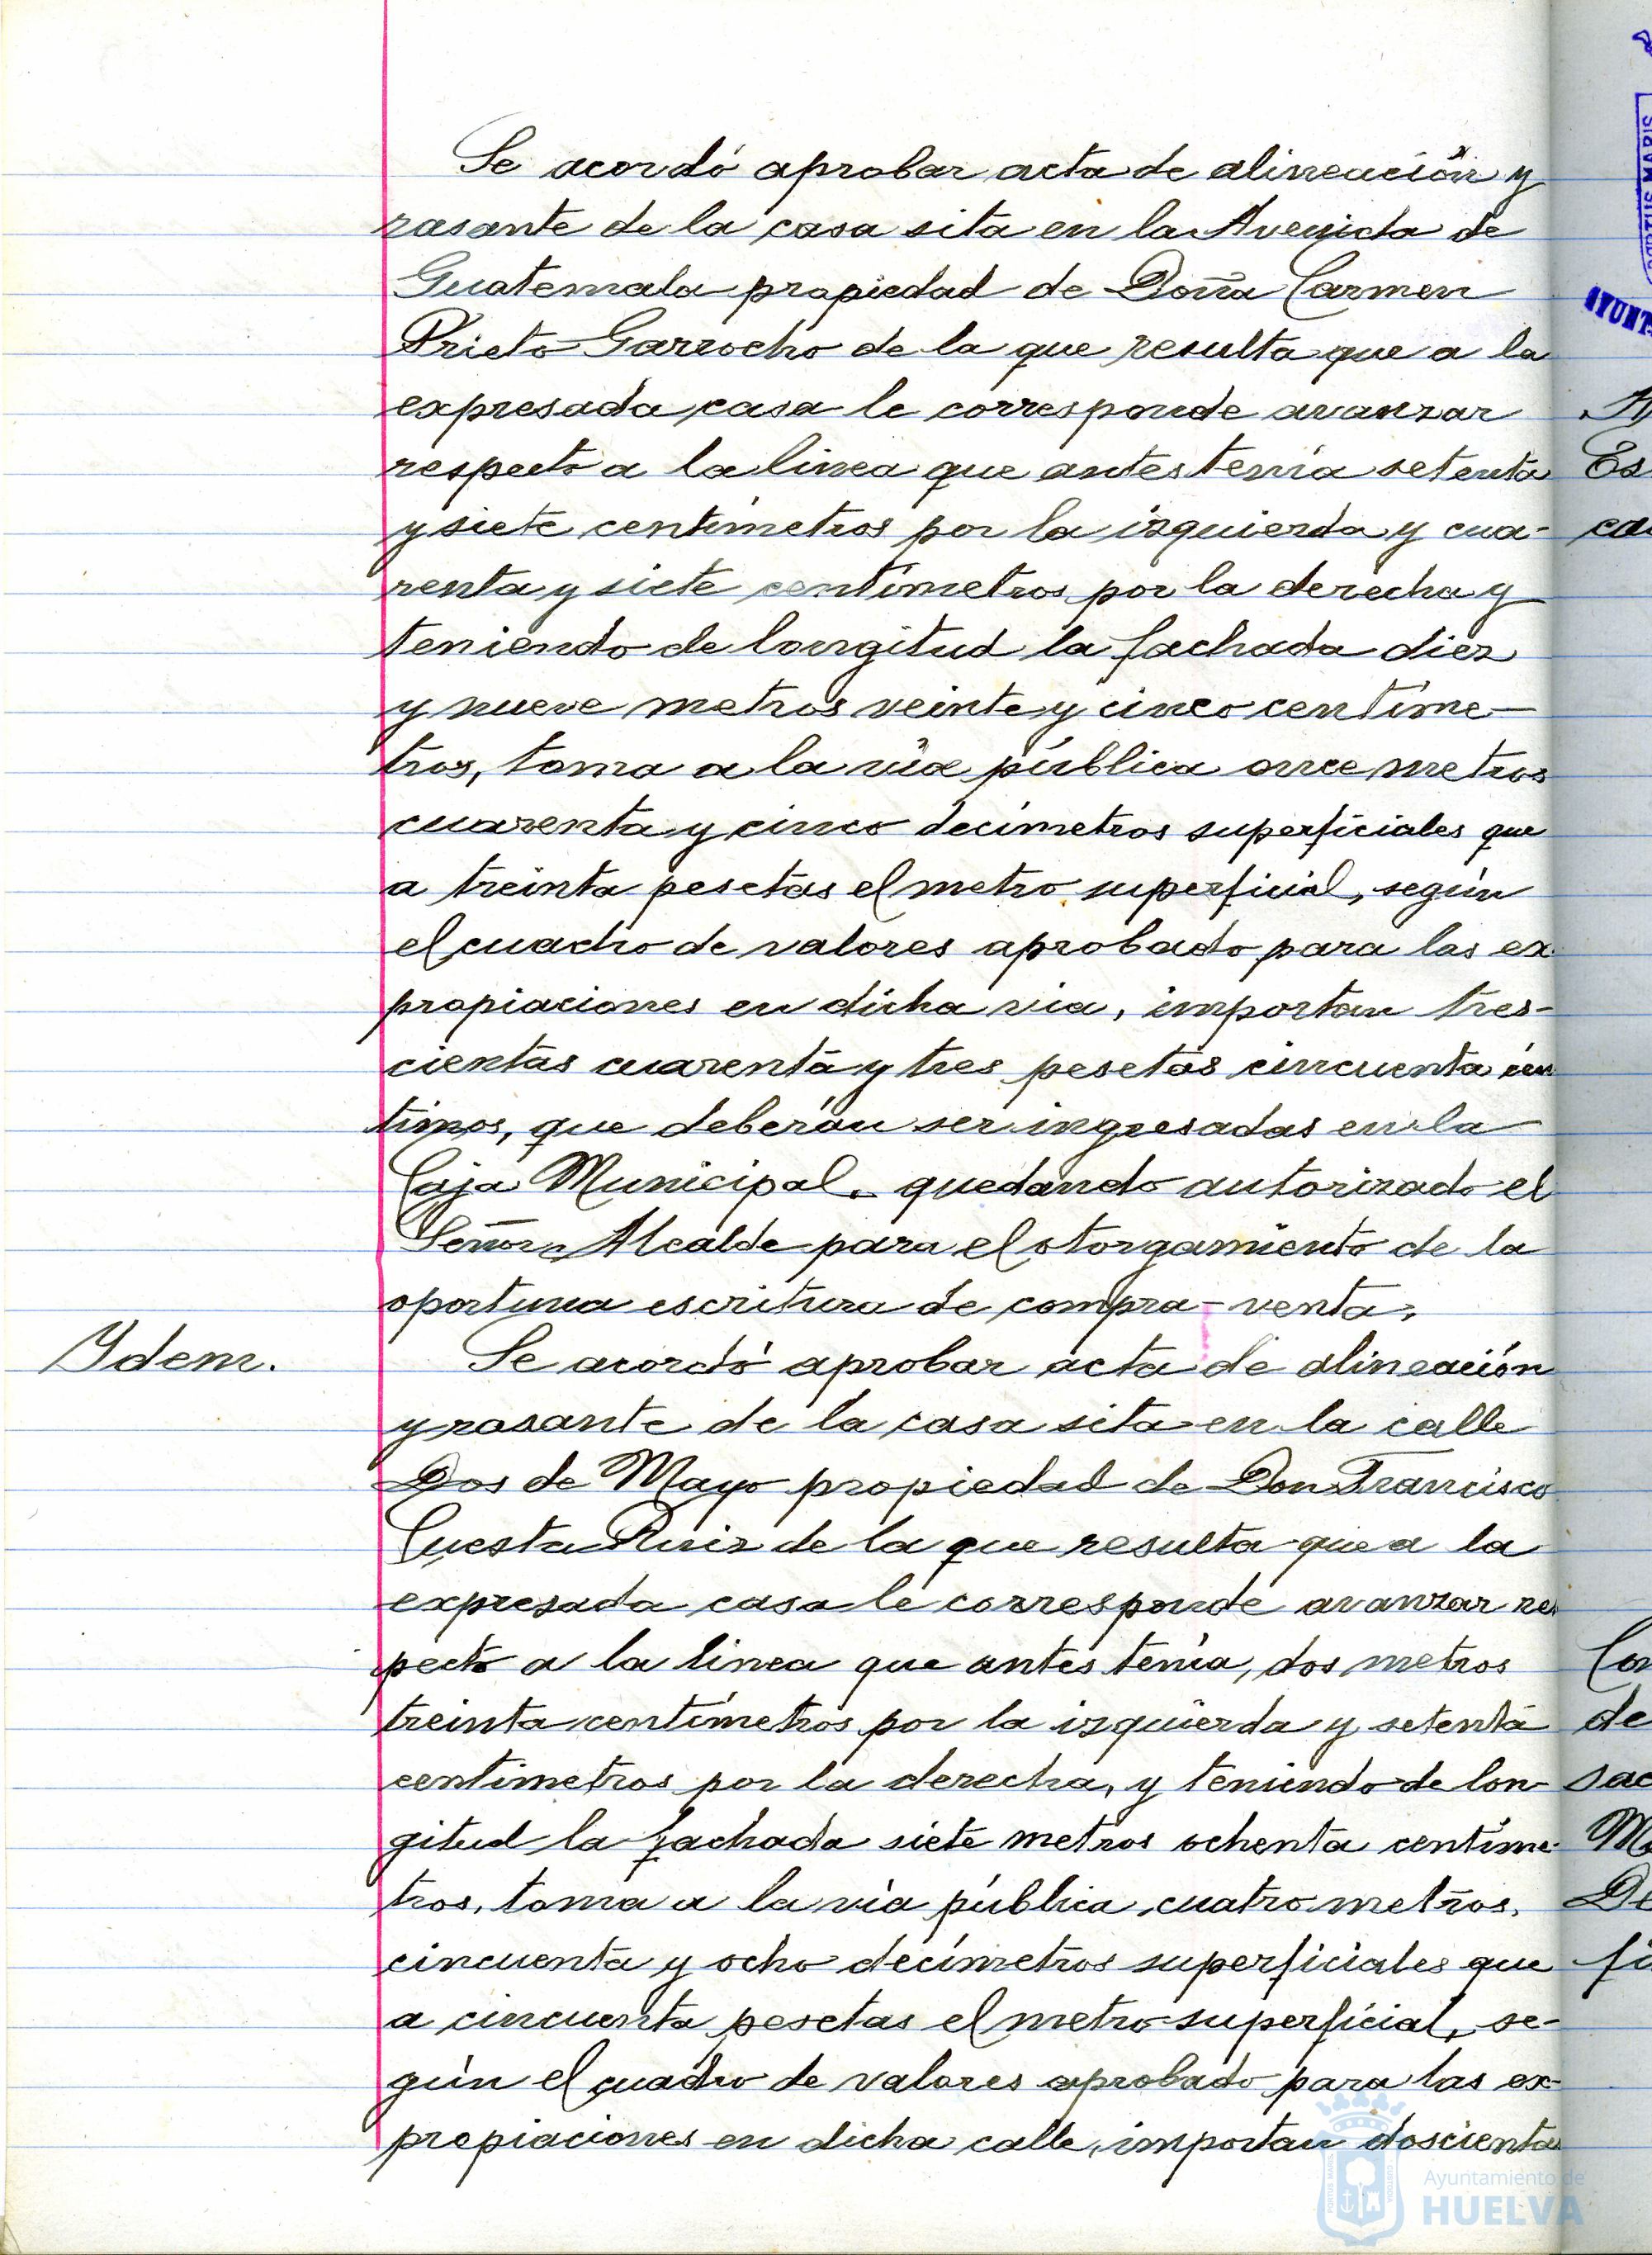 Se acordó aprobar acta de alineación y
rasante de la casa sita en la Avenida de
Guatemala propiedad de Doña Carmen
Prieto Garrocho de la que resulta que a la
expresada casa le corresponde avanzar
respecto a la linea que antes tenía setenta
y siete centímetros por la izquierda y cua-
renta y siete centímetros por la derecha y
teniendo de longitud la fachada diez
y nueve metros veinte y cinco centíme-
tros, toma a la vía pública once metros
cuarenta y cinco decímetros superficiales que
a treinta pesetas el metro superficial, según
el cuadro de valores aprobado para las ex-
propiaciones en dicha via, importan tres-
cientas cuarenta y tres pesetas cincuenta cén
timos, que deberán ser ingresadas en la
Caja Municipal, quedando autorizado el
Señor Alcalde para el otorgamiento de la
oportuna escritura de compra-venta.
Ydem.
Se acordó aprobar acta de alineación
y rasante de la casa sita en la calle
Dos de Mayo propiedad de Don Francisco
Cuesta Ruiz de la que resulta que a la
expresada casa le corresponde avanzar res
pecto a la linea que antes tenía, dos metros
treinta centímetros por la izquierda y setenta
centimetros por la derecha, y teniendo de lon-
gitud la fachada siete metros ochenta centíme-
tros, toma a la vía pública, cuatro metros,
cincuenta y ocho decímetros superficiales que
a cincuenta pesetas el metro superficial, se-
gún el cuadro de valores aprobado para las ex-
propiaciones en dicha calle, importan doscientas
Ayuntamiento de
HUELVA